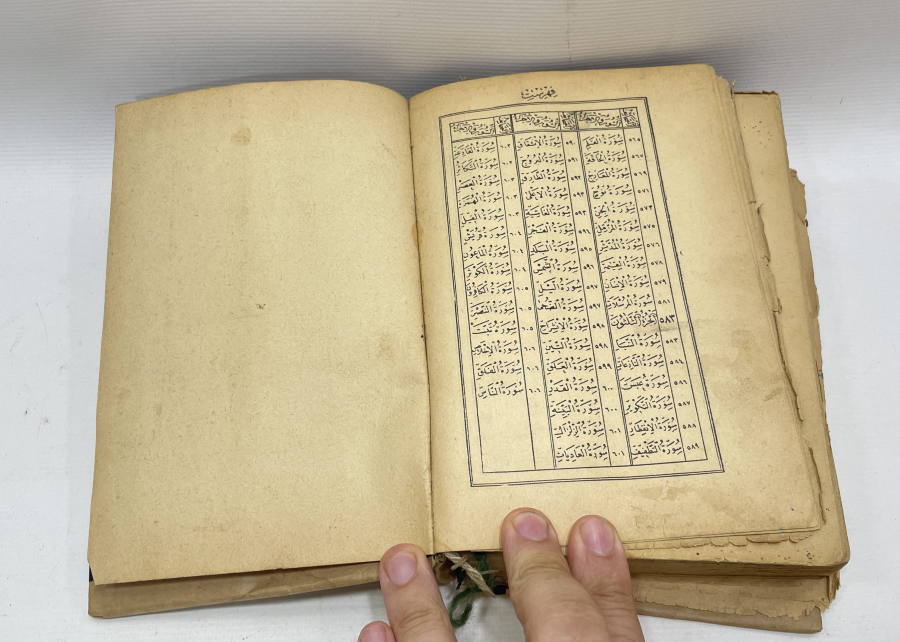 فهرست
٥٦٥ سورة القلم
٥٦٧ سورة الحاقة
٥٦٩ سورة المعارج
٥٧١ سورة نوح
٥٧٣ سورة الجن
٥٧٥ سورة المزمل
٥٧٦ سورة المدثر
٥٧٨ سورة القيمة
٥٧٩ سورة الإنسان
٥٨١ سورة المرسلات
٥٨٣ الجزء الثلثون
٥٨٣ سورة النبأ
٥٨٤ سورة النازعات
٥٨٦ سورة عبس
٥٨٧ سورة التكوير
٥٨٨ سورة الانفطار
٥٨٩ سورة التطفيف
٥٩٠ سورة الانشقاق
٥٩١ سورة البروج
٥٩٢ سورة الطارق
٥٩٣ سورة الأعلى
٥٩٣ سورة الغاشية
٥٩٤ سورة الفجر
٥٩٥ سورة البلد
٥٩٦ سورة الشمس
٥٩٧ سورة الليل
٥٩٧ سورة الضحى
٥٩٨ سورة الانشراح
٥٩٨ سورة التين
٥٩٩ سورة العلق
٦٠٠ سورة القدر
٦٠٠ سورة البينة
٦٠١ سورة الزلزال
٦٠١ سورة العاديات
٦٠٢ سورة القارعة
٦٠٢ سورة التكاثر
٦٠٣ سورة العصر
٦٠٣ سورة الهمزة
٦٠٣ سورة الفيل
٦٠٤ سورة قريش
٦٠٤ سورة الماعون
٦٠٤ سورة الكوثر
٦٠٥ سورة الكافرون
٦٠٥ سورة النصر
٦٠٥ سورة تبت
٦٠٦ سورة الإخلاص
٦٠٦ سورة الفلق
٦٠٦ سورة الناس